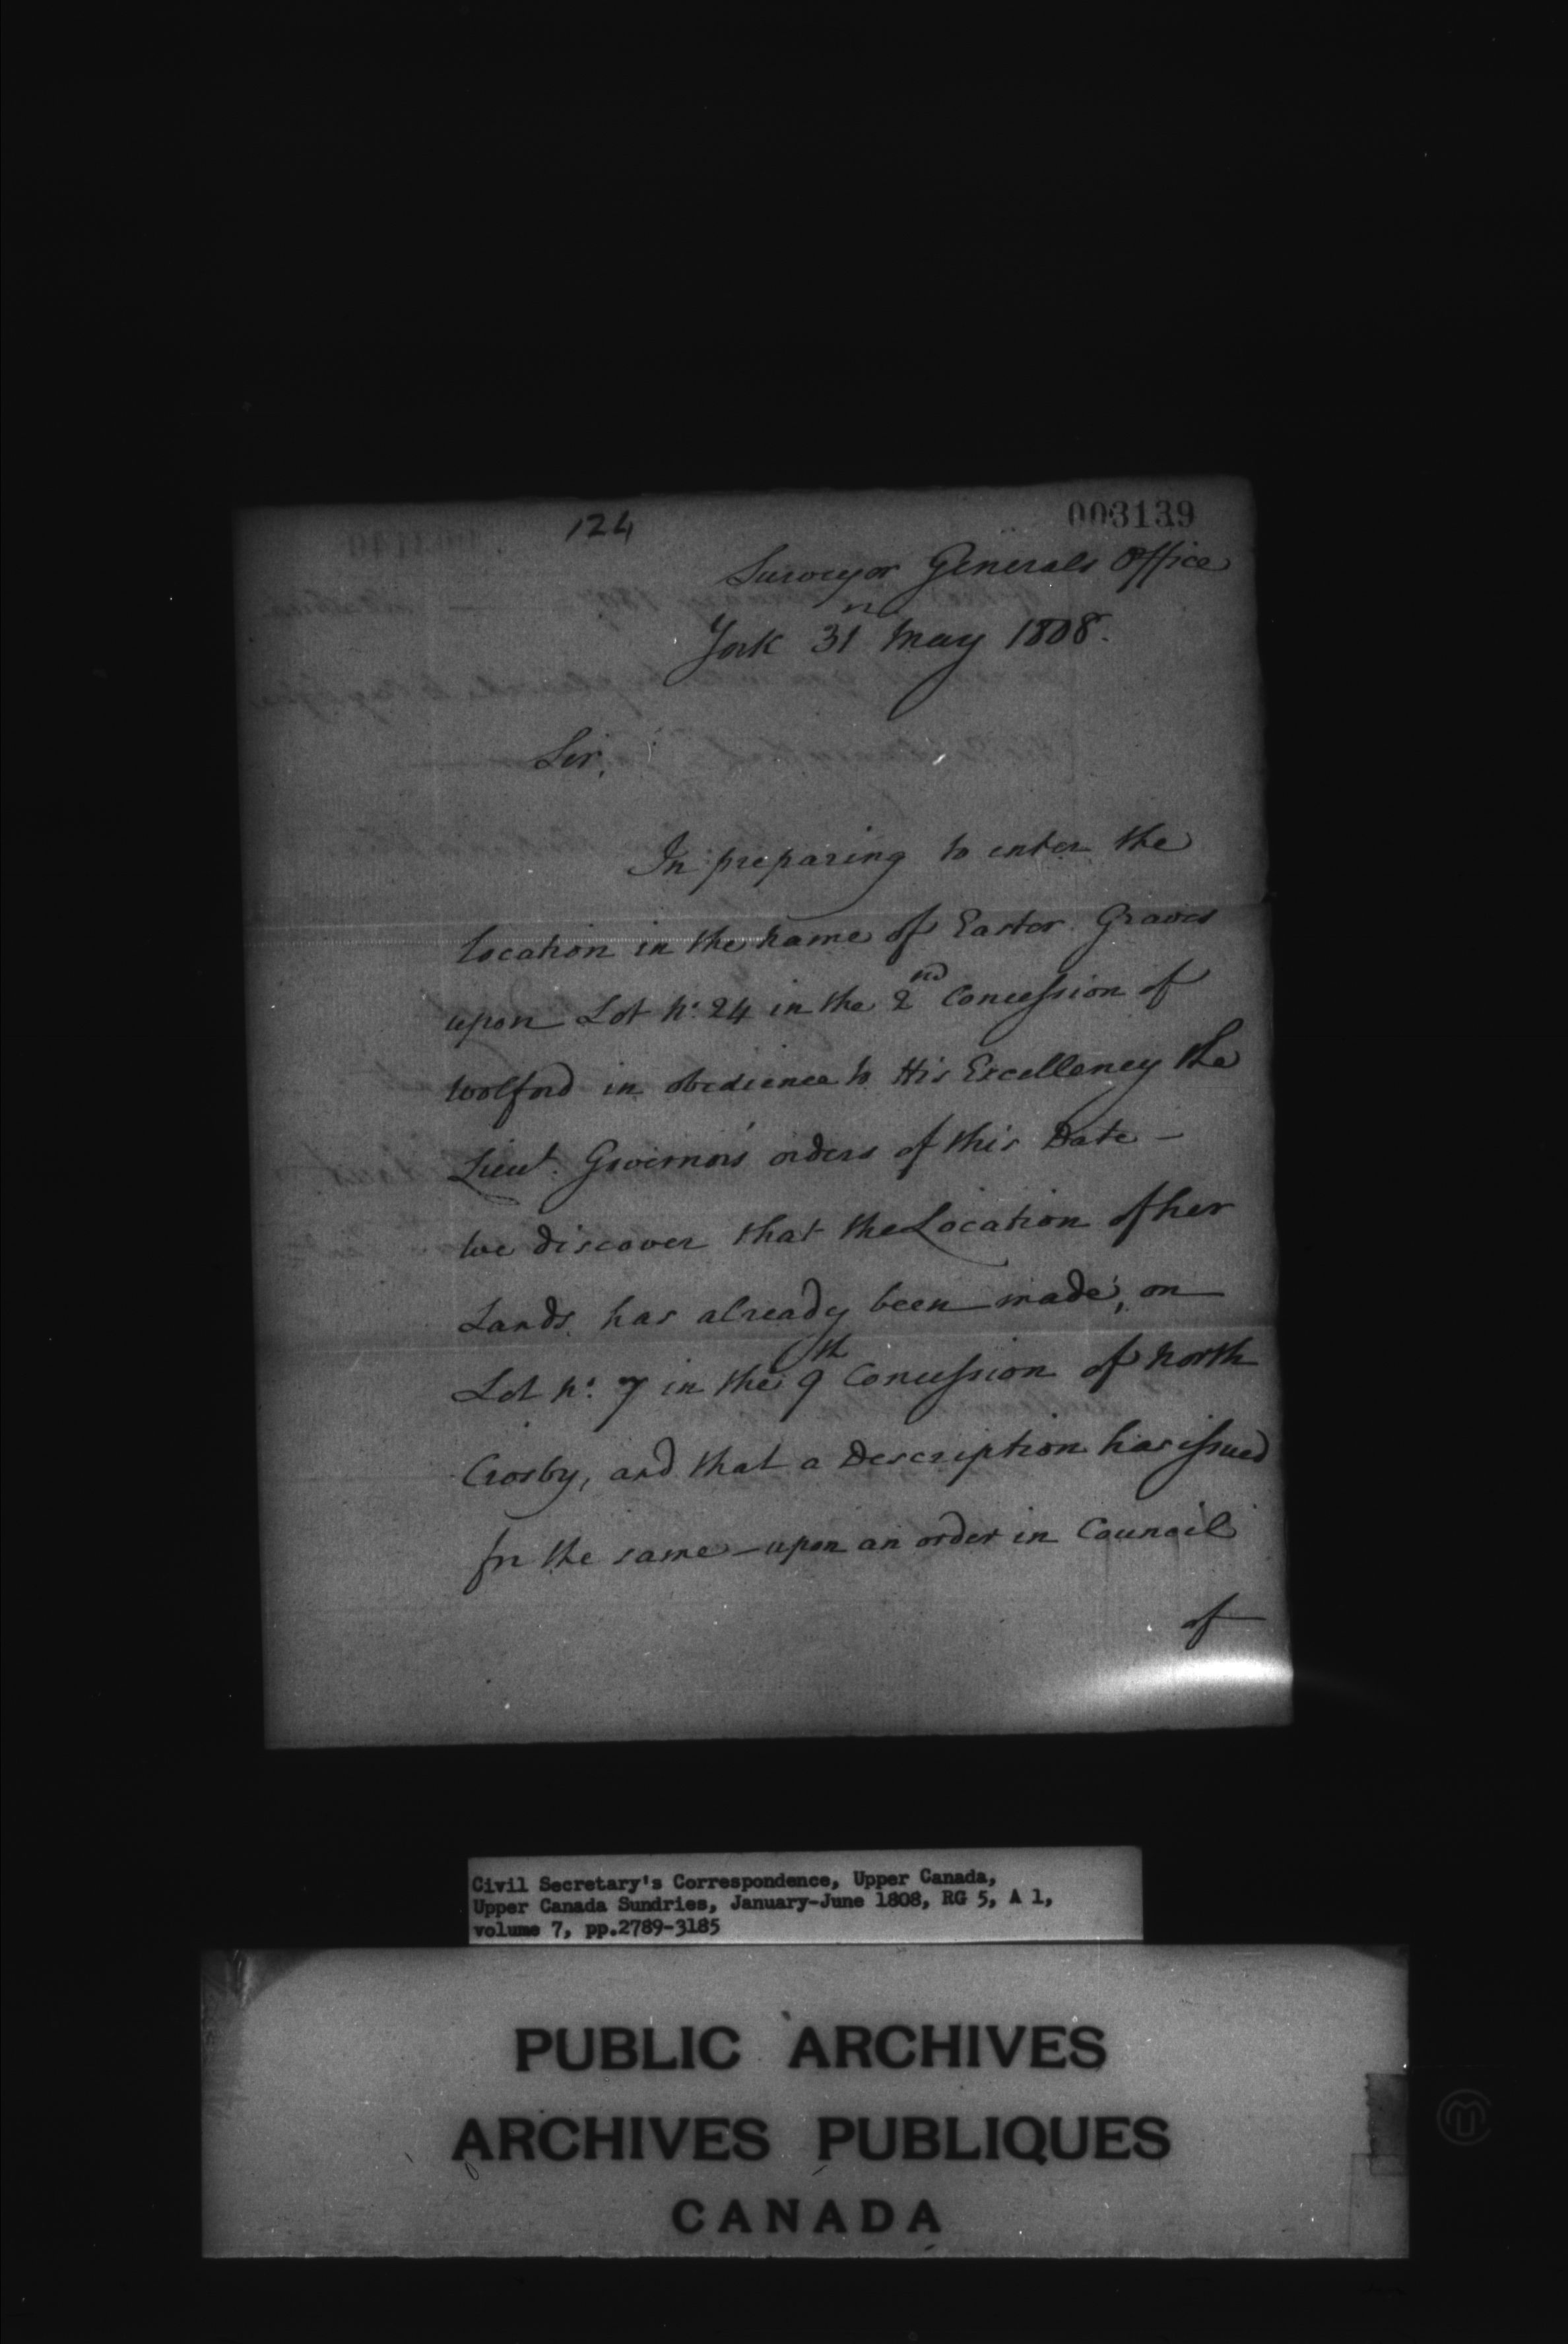 124
003139
Surveyor Generals Office
York 31 May 1808.
Sir,
In preparing to enter the
location in the name of Easter Graves
upon Lot No. 24 in the 2nd Concession of
Wolford in obedience to His Excellency the
Lieut. Governors orders of this Date —
We discover that the Location of her
Lands has already been made, on
Lot No. 7 in the 9th Concession of North
Crosby, and that a Description has issued
for the same — upon an order in Council
of
Civil Secretary's Correspondence, Upper Canada,
Upper Canada Sundries, January-June 1808, RG 5, A 1,
volume 7, pp.2789-3185
PUBLIC ARCHIVES
ARCHIVES PUBLIQUES
CANADA